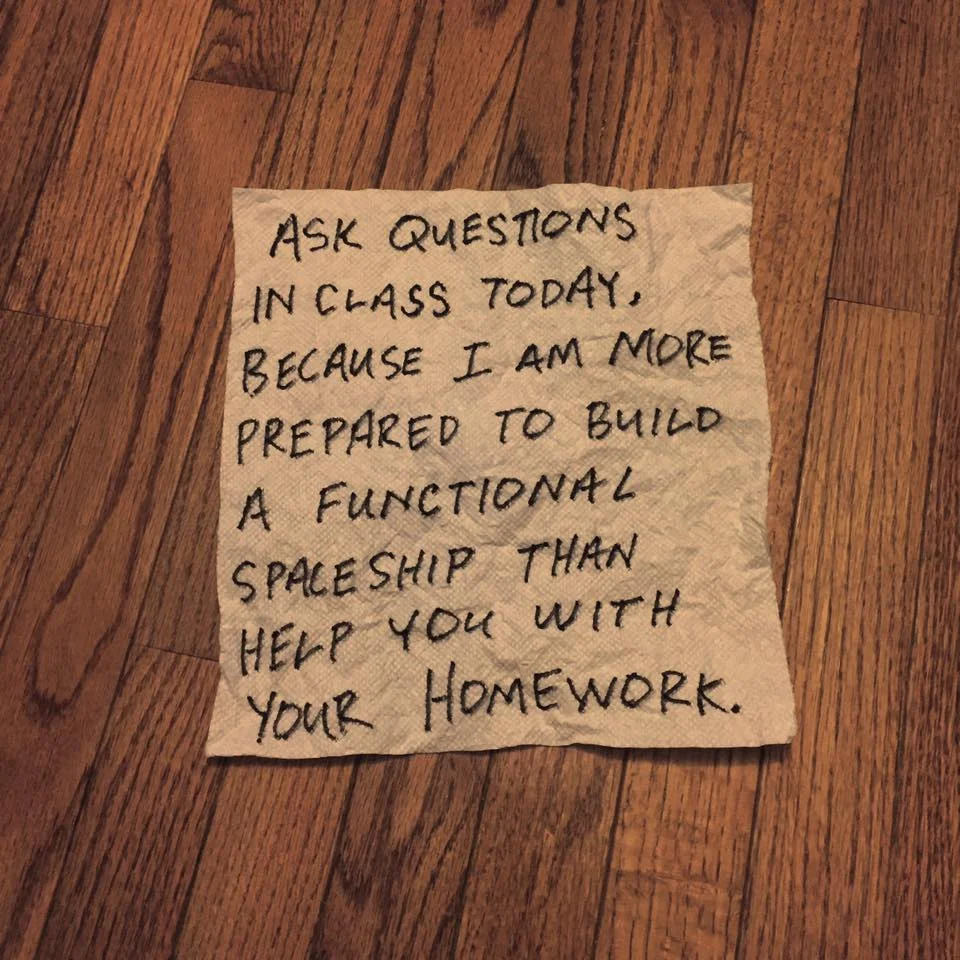 ASK QUESTIONS
IN CLASS TODAY,
BECAUSE I AM MORE
PREPARED TO BUILD
A FUNCTIONAL
SPACESHIP THAN
HELP YOU WITH
YOUR HOMEWORK.